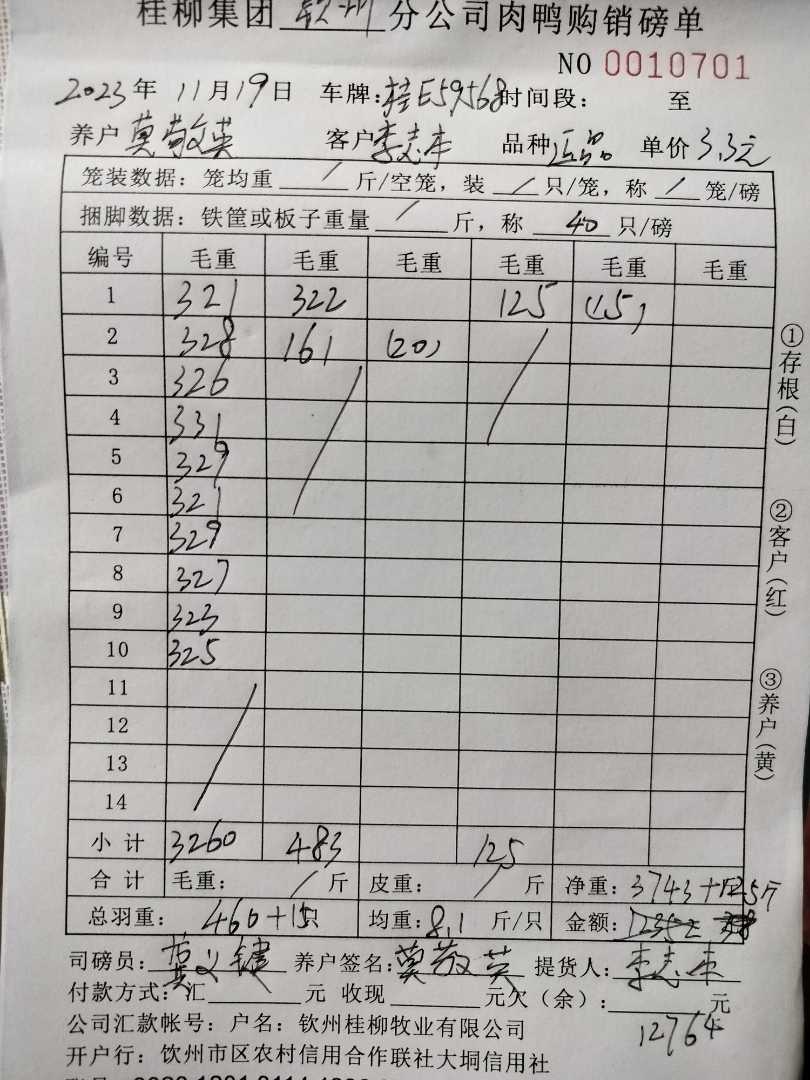 桂柳集团 钦州 分公司肉鸭购销磅单
NO 0010701
2023年 11月19日 车牌:桂E59568 时间段: 至
养户 莫敬英 客户 李志 品种 正品 单价 3.3元
笼装数据: 笼均重 / 斤/空笼, 装 / 只/笼, 称 / 笼/磅
捆脚数据: 铁筐或板子重量 / 斤, 称 40 只/磅
编号 毛重 毛重 毛重 毛重 毛重 毛重
1 321 322 125 (15)
2 328 161 (20)
3 326
4 331
5 329
6 321
7 329
8 327
9 323
10 325
11
12
13
14
小 计 3260 483 125
合 计 毛重: / 斤 皮重: / 斤 净重: 3743+125斤
总羽重: 460+15只 均重: 8.1 斤/只 金额:
司磅员: 莫义键 养户签名: 莫敬英 提货人: 李志
付款方式: 汇 元 收现 元欠(余): 元
12764
公司汇款帐号: 户名: 钦州桂柳牧业有限公司
开户行: 饮州市区农村信用合作联社大垌信用社
①存根(白)
②客户(红)
③养户(黄)